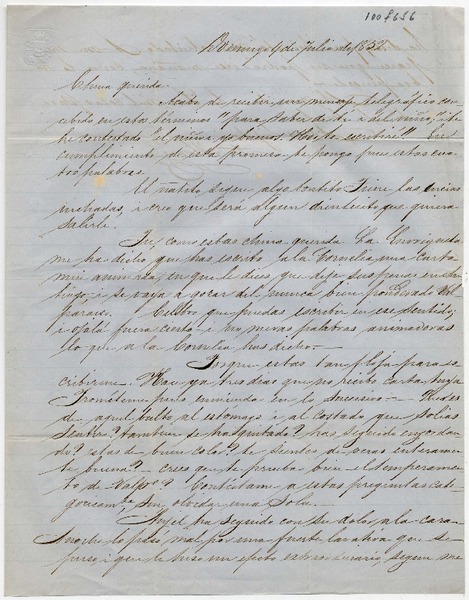 1008656
Domingo 4 de Julio de 185
China querida:
Acabo de recibir un mensaje telegráfico con
cebido en estos terminos "para saber de ti i del niño," i te
he contestado "el niño yo buenos. Hoi te escribiré" En
cumplimiento de esta promesa te pongo pues estas cua
tro palabras.
El ñatito sigue algo tontito Tiene las encias
inchadas, i creo que será algun dientecito que quiera
salirle.
Tu como estas china querida La Enriqueta
me ha dicho que has escrito a la Cornelia una carta
mui animada, en que le dices que deje sus penas en San
tiago i se vaya a gozar del nunca bien ponderado Val
paraiso. que puedas escribir en ese sentido;
i ojalá fuera cierto i no meras palabras animadoras
lo que a la Cornelia has dicho.—
Porque estas tan floja para es
cribirme. Hace ya tres dias que no recibo carta tuya
Prometeme pues enmienda en lo sucesivo —
de aquel bulto al estomago i al costado que solias
sentir? tambien se ha quitado? has seguido engordan
do? estas de buen color? te sientes de veras enteramen
te buena? — crees que te prueba bien el temperamen
to de Valpo? Contéstame a estas preguntas cate
goricamte sin olvidar una sola.—
Anjel ha seguido con su dolor a la cara
Anoche lo pasó mal por una fuerte lavativa que se
puso i que le hizo un efecto estraordinario, segun me